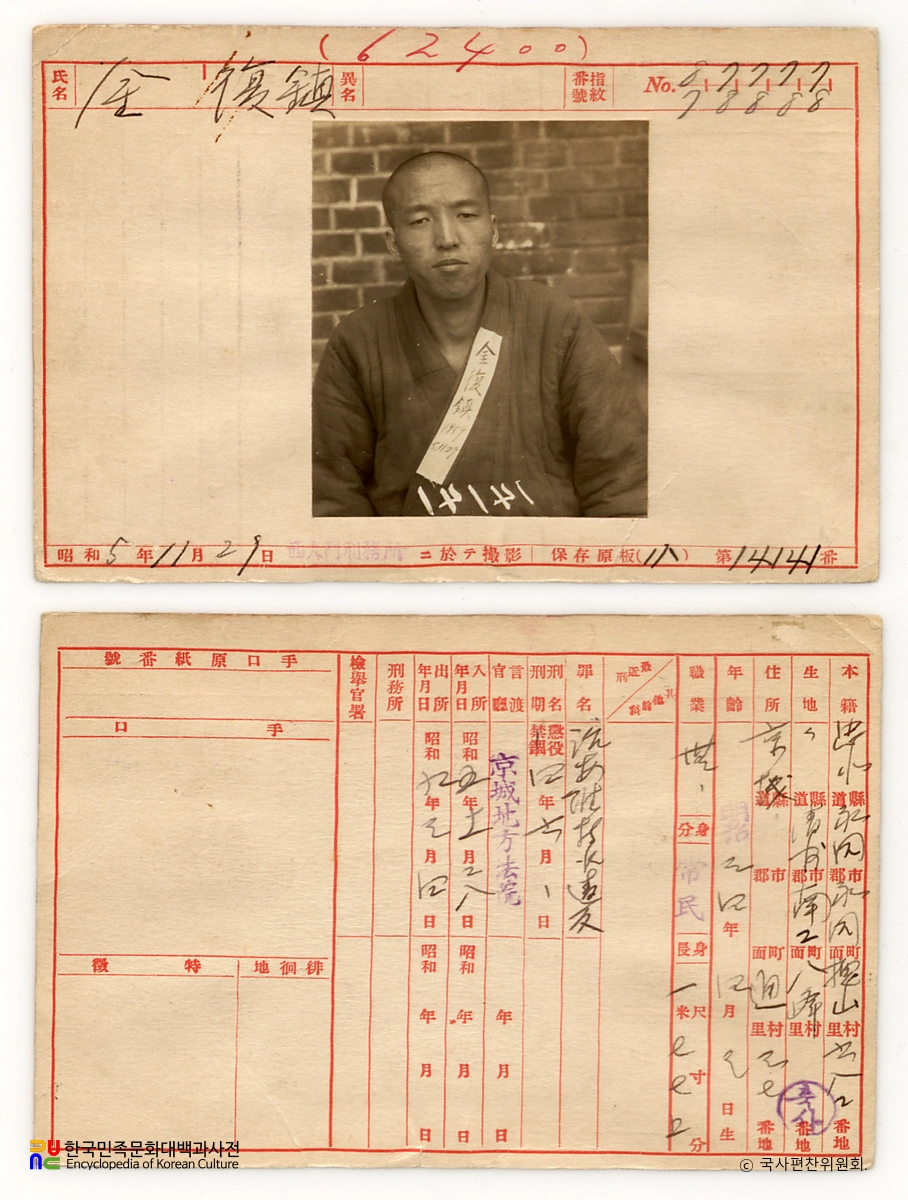 (62400)
氏名 金 復鎮 異名 指紋番號 No. 8-7-7-7-7
7 8 8 8 8
金復鎮
14141
昭和5年11月29日 西大門刑務所 ニ於テ撮影 保存原板(小) 第14141番
本籍 道縣 永同 郡市 永同 面町 里村 番地
生地 道縣 清州 郡市 南 面町 里村 番地
住所 京城 道縣 郡市 面町 通 里村 番地
年齢 明治 三四年 四月 日生
職業 無 身分 常民 身長 一米尺 七寸 分
最近刑 其他前科
罪名 治安維持法違反
刑名 刑期 懲役 禁錮 四年 六月 日
言渡官廳 京城地方法院 年 月 日
入所年月日 昭和五年 十一月二八日 昭和 年 月 日
出所年月日 昭和九年 月 四日 昭和 年 月 日
刑務所
檢舉官署
手口原紙番號
手口
徘徊地
特徵
한국민족문화대백과사전
Encyclopedia of Korean Culture
© 국사편찬위원회